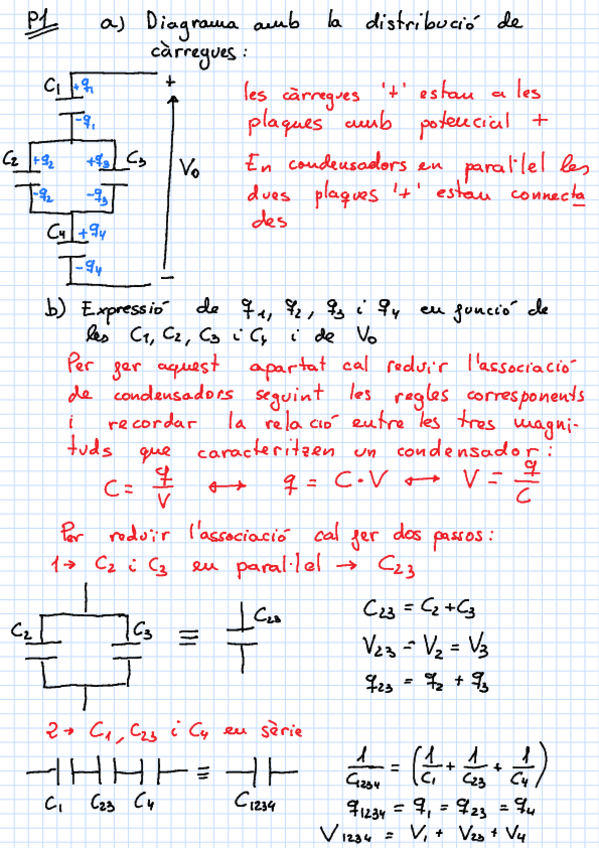 P1 a) Diagrama amb la distribució de
càrregues:
C1 +q1 +
-q1
C2 +q2 +q3 C3 V0
-q2 -q3
C4 +q4
-q4 -
les càrregues '+' estan a les
plaques amb potencial +
En condensadors en paral·lel les
dues plaques '+' estan connecta
des
b) Expressió de q1, q2, q3 i q4 en funció de
les C1, C2, C3 i C4 i de V0
Per fer aquest apartat cal reduir l'associació
de condensadors seguint les regles corresponents
i recordar la relació entre les tres magni-
tuds que caracteritzen un condensador:
C = q/V ↔ q = C·V ↔ V = q/C
Per reduir l'associació cal fer dos passos:
1→ C2 i C3 en paral·lel → C23
C2 C3 ≡ C23
C23 = C2 + C3
V23 = V2 = V3
q23 = q2 + q3
2→ C1, C23 i C4 en sèrie
C1 C23 C4 ≡ C1234
1/C1234 = (1/C1 + 1/C23 + 1/C4)
q1234 = q1 = q23 = q4
V1234 = V1 + V23 + V4